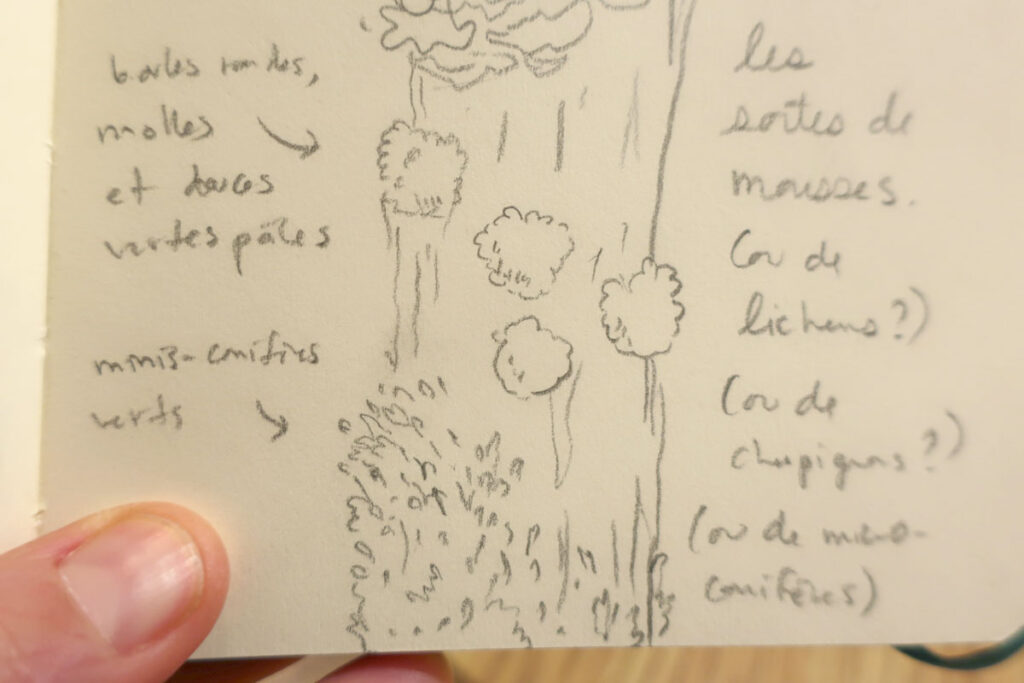 boules rondes,
molles
et douces
vertes pâles
minis-conifères
verts
les
sortes de
mousses.
(ou de
lichens?)
(ou de
champignons?)
(ou de micro-
conifères)